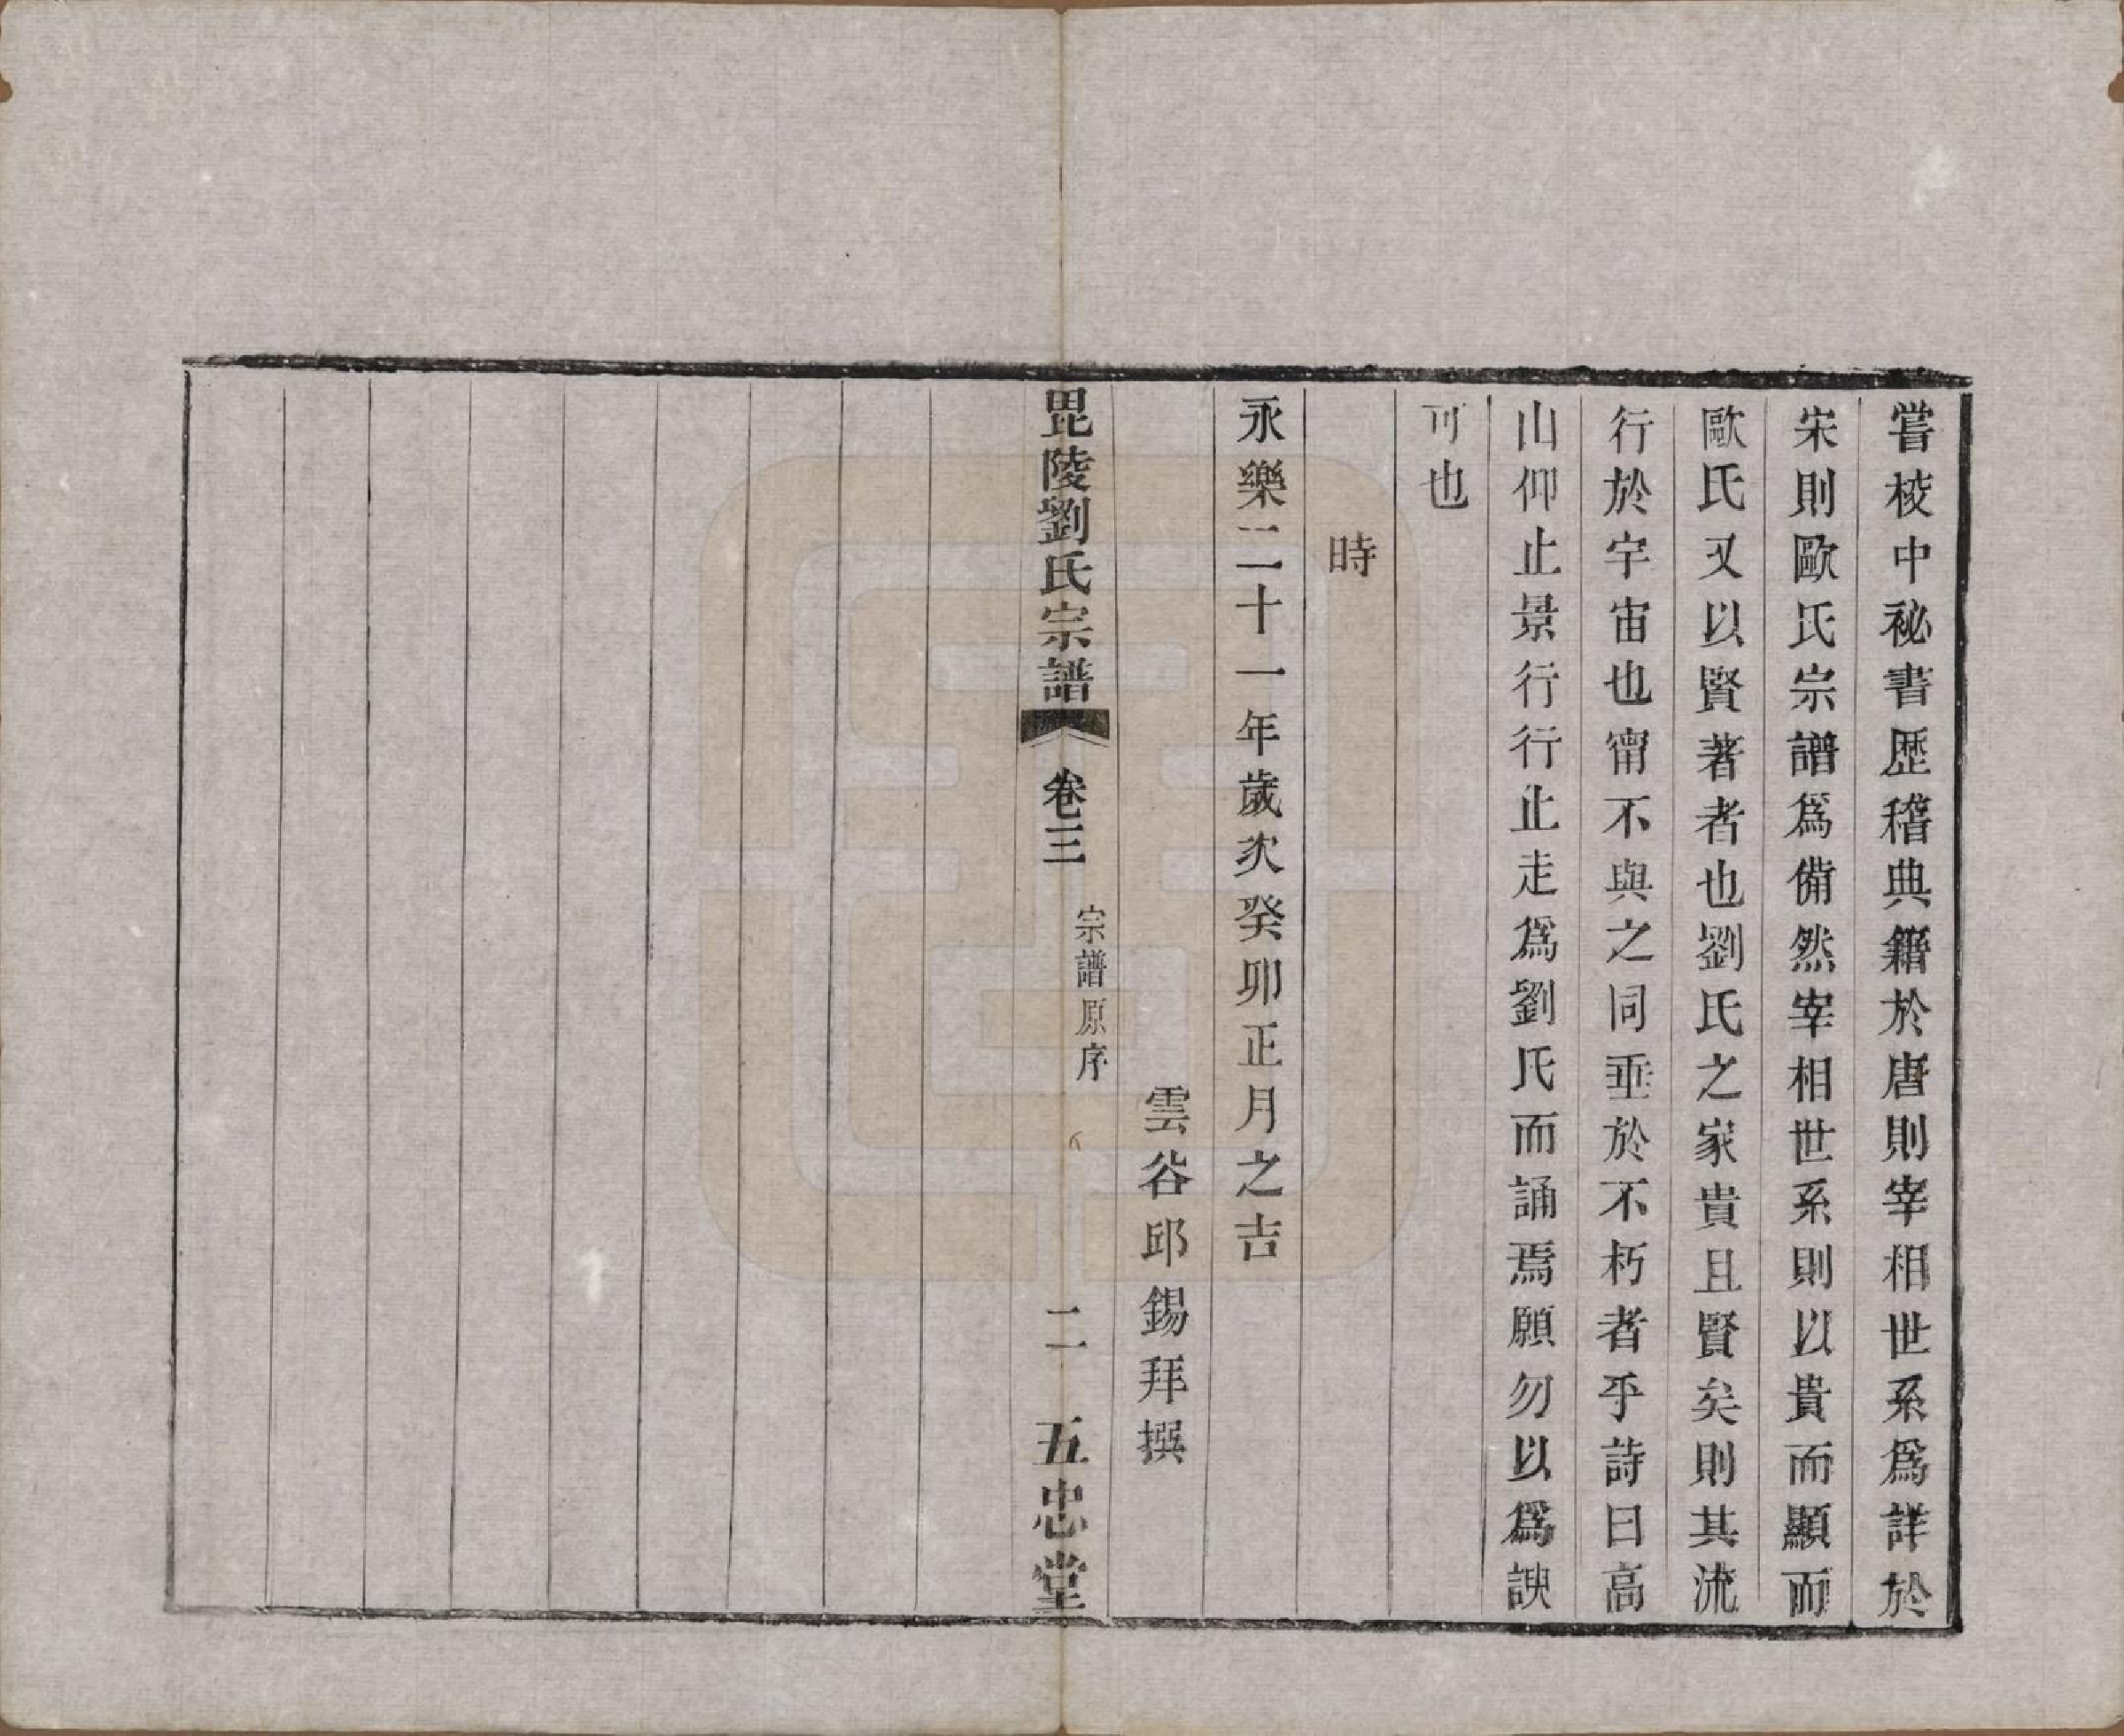 嘗棱中祕書歷稽典籍於唐則宰相世系爲詳於
宋則歐氏宗譜爲備然宰相世系則以貴而顯而
歐氏又以賢著者也劉氏之家貴且賢矣則其流
行於宇宙也甯不與之同垂於不朽者乎詩曰高
山仰止景行行止走爲劉氏而誦焉願勿以爲諛
可也
時
永樂二十一年歲次癸卯正月之吉
雲谷邱錫拜撰
毘陵劉氏宗譜
卷三
宗譜原序
二
五忠堂